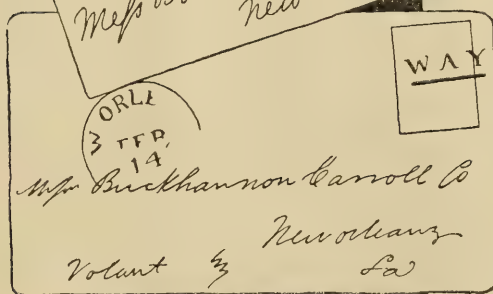 Mess
New
WAY
ORLE
FEB.
14
Mess Buckhannon Carroll Co
Neworleans
Volant
La